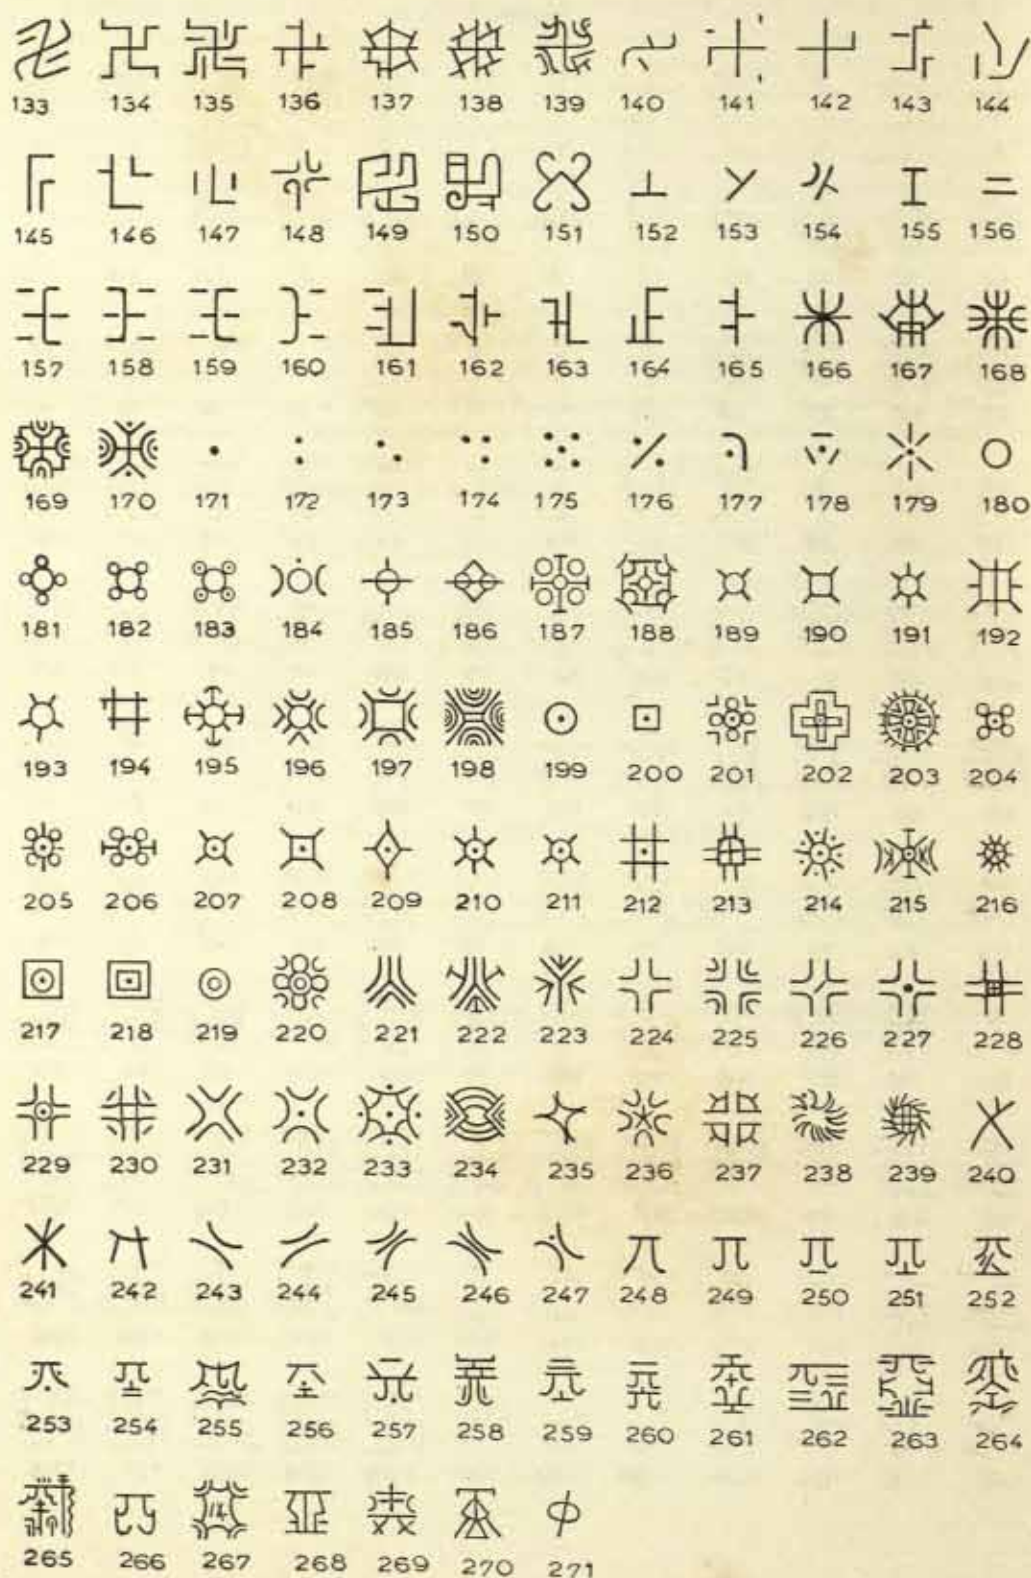 133 134 135 136 137 138 139 140 141 142 143 144
145 146 147 148 149 150 151 152 153 154 155 156
157 158 159 160 161 162 163 164 165 166 167 168
169 170 171 172 173 174 175 176 177 178 179 180
181 182 183 184 185 186 187 188 189 190 191 192
193 194 195 196 197 198 199 200 201 202 203 204
205 206 207 208 209 210 211 212 213 214 215 216
217 218 219 220 221 222 223 224 225 226 227 228
229 230 231 232 233 234 235 236 237 238 239 240
241 242 243 244 245 246 247 248 249 250 251 252
253 254 255 256 257 258 259 260 261 262 263 264
265 266 267 268 269 270 271